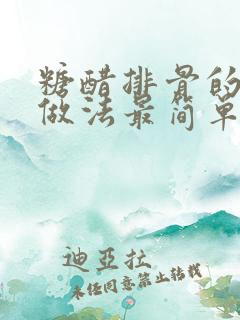 糖醋排骨的
做法最简单
迪亞拉
未经同意禁止转载